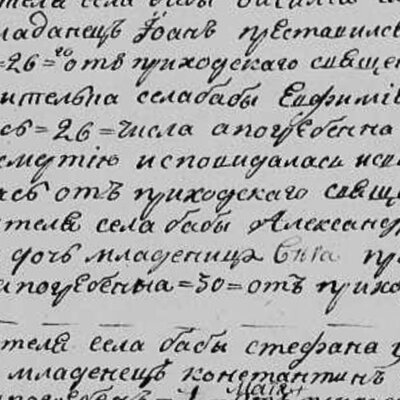 теля села бабы
младанецъ Іоанъ преставилсѧ
=26=го отъ приходскаго свѧщен
жительна села бабы Евфимїѧ
сь =26= числа а погребенна
смертїю исповидалась исп
лась отъ приходскаго свѧщ
ителѧ села бабы Александр
дочь младеница пр
а погребеныа =30= отъ прихо
ителѧ села бабы стефана
младенецъ константинъ
погребенъ =1= Маїѧ